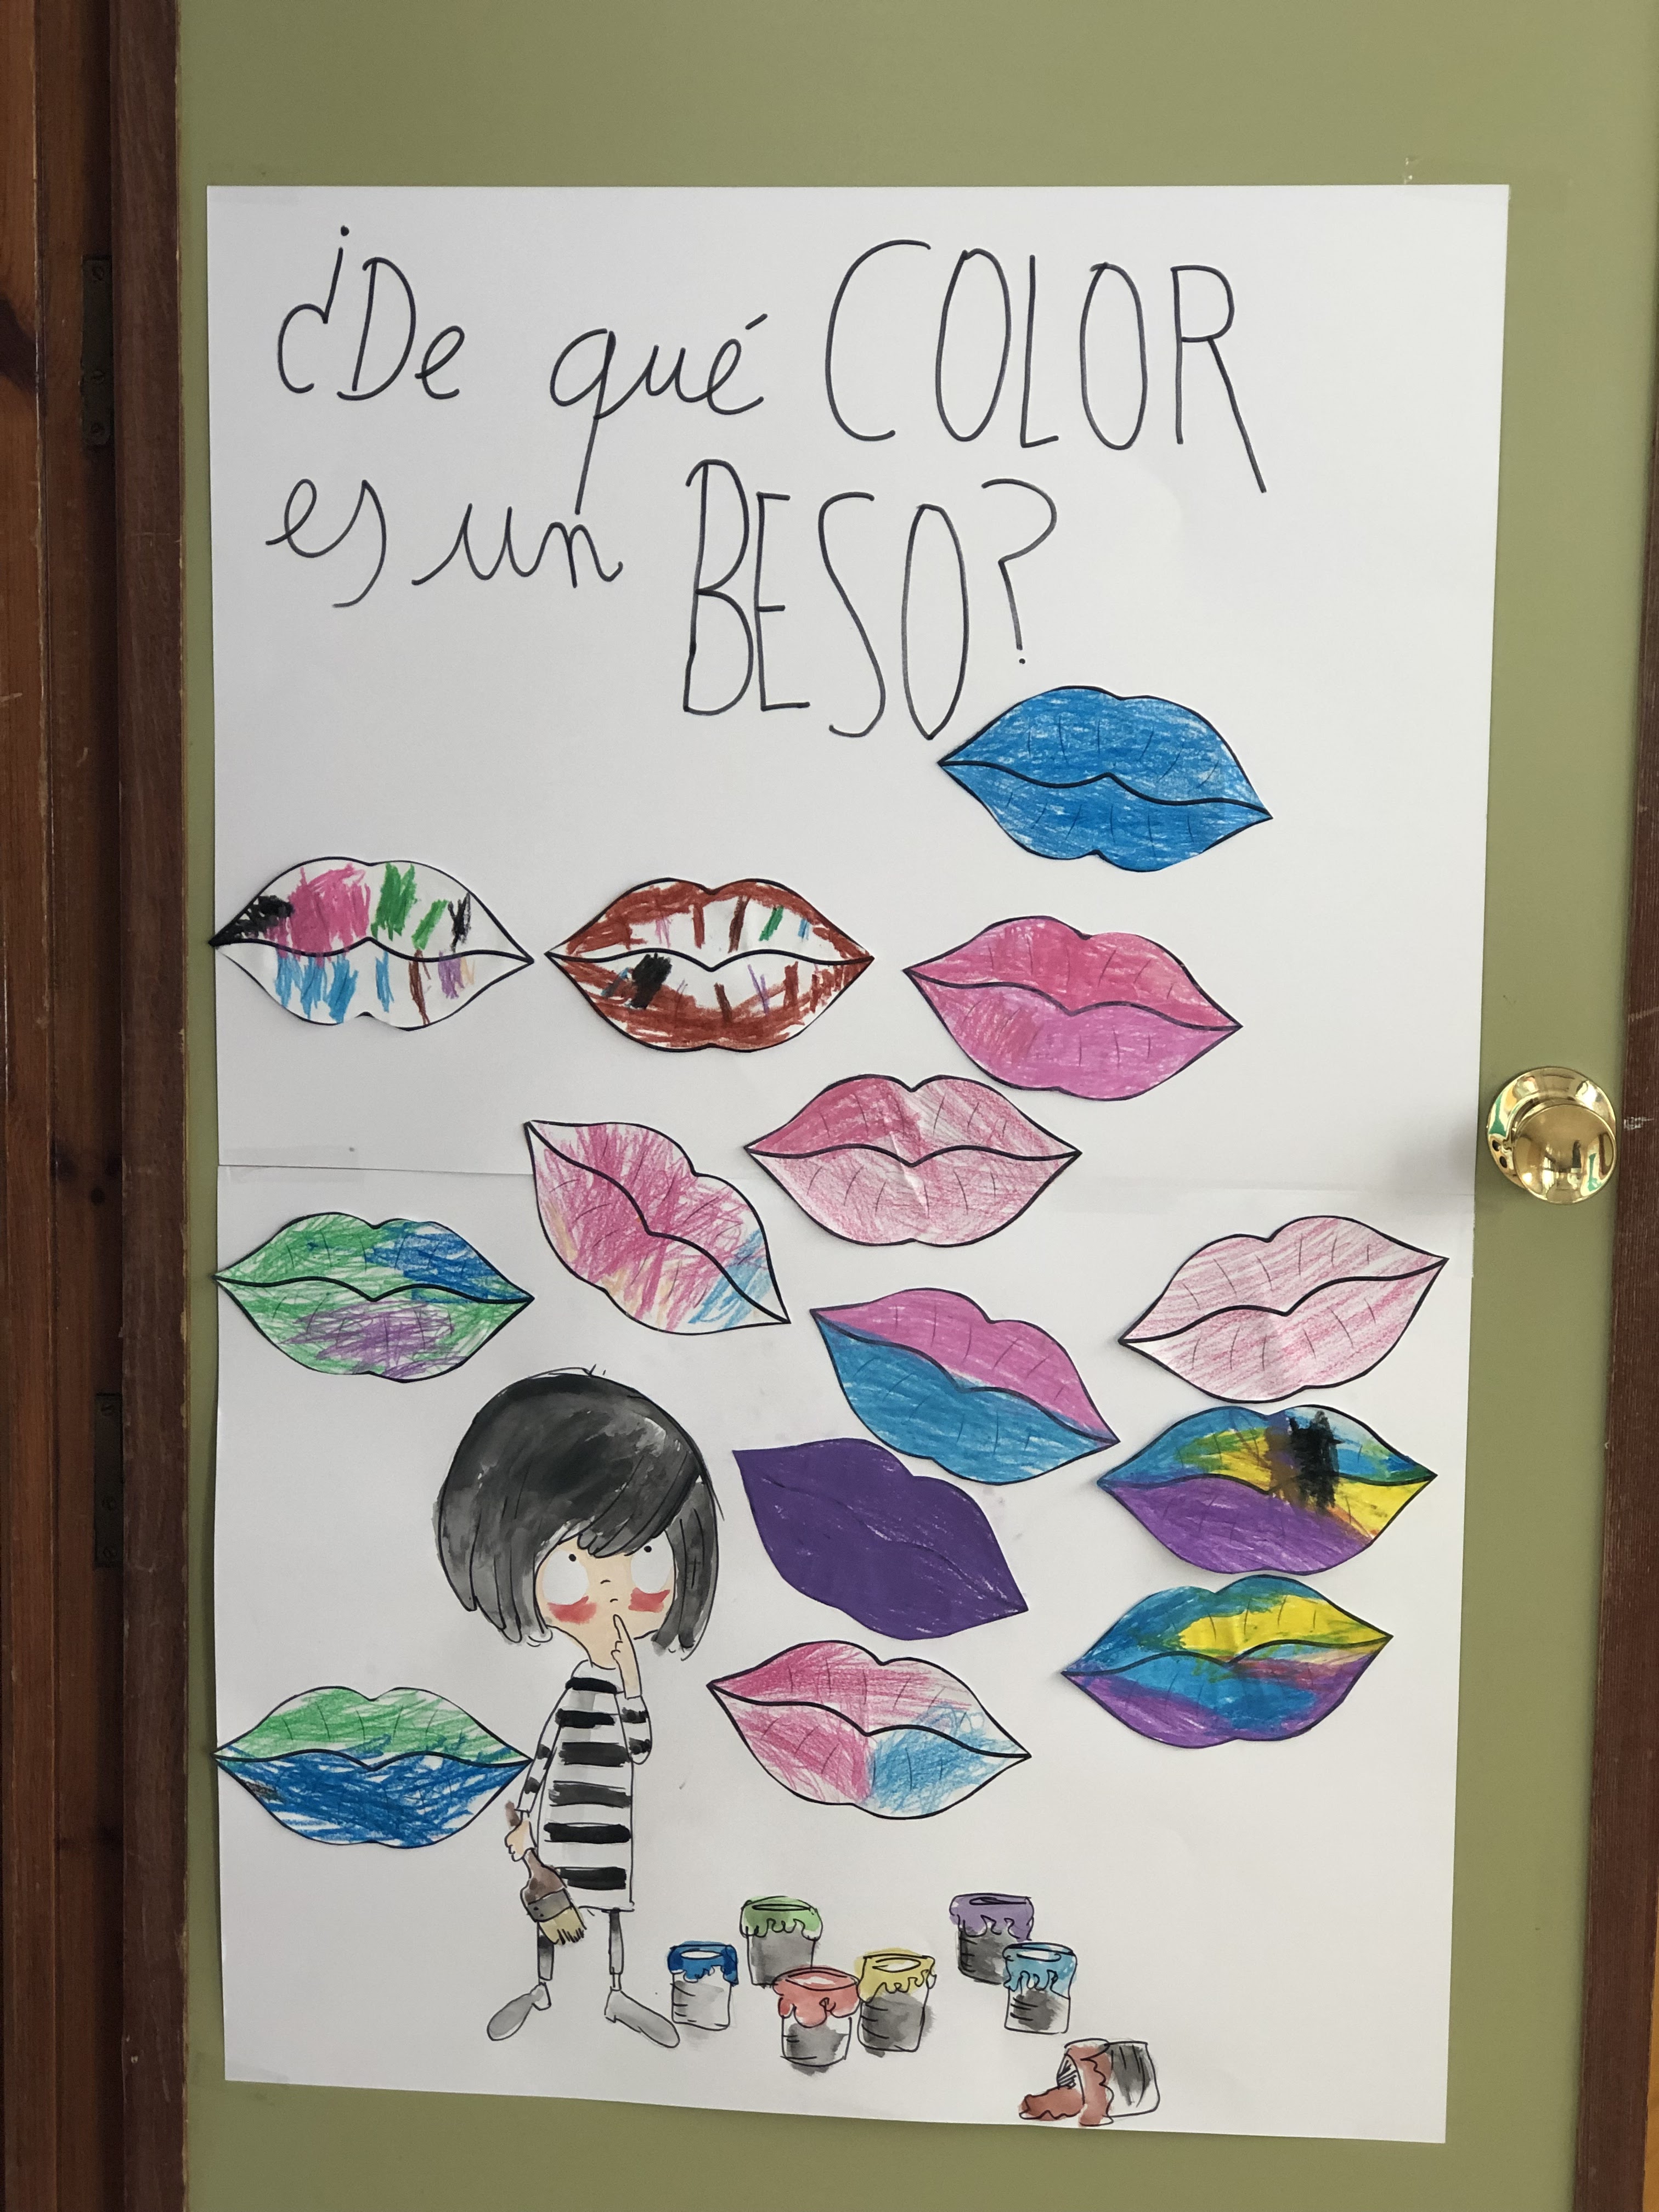 ¿De qué COLOR
es un BESO?